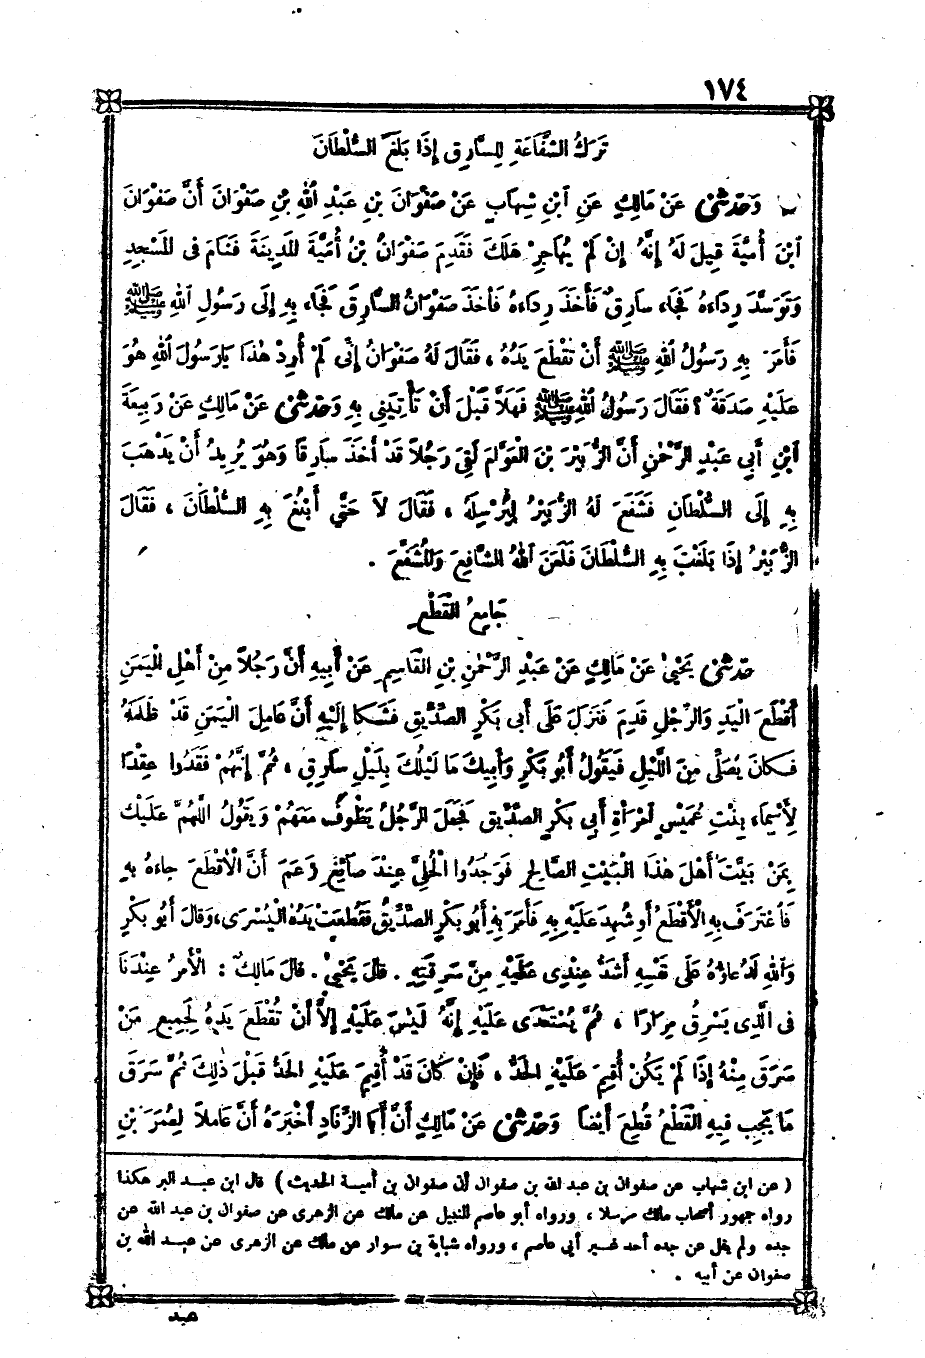 ١٧٤
تَرْكُ الشَّفَاعَةِ لِلسَّارِقِ إِذَا بَلَغَ السُّلْطَانَ
وَحَدَّثَنِى عَنْ مَالِكٍ عَنِ ابْنِ شِهَابٍ عَنْ صَفْوَانَ بْنِ عَبْدِ اللهِ بْنِ صَفْوَانَ أَنَّ صَفْوَانَ
ابْنَ أُمَيَّةَ قِيلَ لَهُ إِنَّهُ إِنْ لَمْ يُهَاجِرْ هَلَكَ فَقَدِمَ صَفْوَانُ بْنُ أُمَيَّةَ الْمَدِينَةَ فَنَامَ فى الْمَسْجِدِ
وَتَوَسَّدَ رِدَاءَهُ فَجَاءَ سَارِقٌ فَأَخَذَ رِدَاءَهُ فَأَخَذَ صَفْوَانُ السَّارِقَ فَجَاءَ بِهِ إِلَى رَسُولِ اللهِ ﷺ
فَأَمَرَ بِهِ رَسُولُ اللهِ ﷺ أَنْ تُقْطَعَ يَدُهُ ، فَقَالَ لَهُ صَفْوَانُ إِنِّى لَمْ أُرِدْ هٰذَا يَارَسُولَ اللهِ هُوَ
عَلَيْهِ صَدَقَةٌ ؟ فَقَالَ رَسُولُ اللهِ ﷺ فَهَلَّا قَبْلَ أَنْ تَأْتِيَنِى بِهِ وَحَدَّثَنِى عَنْ مَالِكٍ عَنْ رَبِيعَةَ
ابْنِ أَبِى عَبْدِ الرَّحْمٰنِ أَنَّ الزُّبَيْرَ بْنَ الْعَوَّامِ لَقِىَ رَجُلاً قَدْ أَخَذَ سَارِقًا وَهُوَ يُرِيدُ أَنْ يَذْهَبَ
بِهِ إِلَى السُّلْطَانِ فَشَفَعَ لَهُ الزُّبَيْرُ لِيُرْسِلَهُ ، فَقَالَ لَا حَتَّى أَبْلُغَ بِهِ السُّلْطَانَ ، فَقَالَ
الزُّبَيْرُ إِذَا بَلَغْتَ بِهِ السُّلْطَانَ فَلَعَنَ اللهُ الشَّافِعَ وَالْمُشَفِّعَ .
جَامِعُ الْقَطْعِ
حَدَّثَنِى يَحْيَى عَنْ مَالِكٍ عَنْ عَبْدِ الرَّحْمٰنِ بْنِ الْقَاسِمِ عَنْ أَبِيهِ أَنَّ رَجُلاً مِنْ أَهْلِ الْيَمَنِ
أَقْطَعَ الْيَدِ وَالرِّجْلِ قَدِمَ فَنَزَلَ عَلَى أَبِى بَكْرٍ الصِّدِّيقِ فَشَكَا إِلَيْهِ أَنَّ عَامِلَ الْيَمَنِ قَدْ ظَلَمَهُ
فَكَانَ يُصَلِّى مِنَ اللَّيْلِ فَيَقُولُ أَبُو بَكْرٍ وَأَبِيكَ مَا لَيْلُكَ بِلَيْلِ سَارِقٍ ، ثُمَّ إِنَّهُمْ فَقَدُوا عِقْدًا
لِأَسْمَاءَ بِنْتِ عُمَيْسٍ امْرَأَةِ أَبِى بَكْرٍ الصِّدِّيقِ فَجَعَلَ الرَّجُلُ يَطُوفُ مَعَهُمْ وَيَقُولُ اللَّهُمَّ عَلَيْكَ
بِمَنْ بَيَّتَ أَهْلَ هٰذَا الْبَيْتِ الصَّالِحِ فَوَجَدُوا الْحُلِىَّ عِنْدَ صَائِغٍ زَعَمَ أَنَّ الْأَقْطَعَ جَاءَهُ بِهِ
فَاعْتَرَفَ بِهِ الْأَقْطَعُ أَوْ شُهِدَ عَلَيْهِ بِهِ فَأَمَرَ بِهِ أَبُو بَكْرٍ الصِّدِّيقُ فَقُطِعَتْ يَدُهُ الْيُسْرَى ، وَقَالَ أَبُو بَكْرٍ
وَاللهِ لَدُعَاؤُهُ عَلَى نَفْسِهِ أَشَدُّ عِنْدِى عَلَيْهِ مِنْ سَرِقَتِهِ . قَالَ يَحْيَى . قَالَ مَالِكٌ : الْأَمْرُ عِنْدَنَا
فى الَّذِى يَسْرِقُ مِرَارًا ، ثُمَّ يُسْتَعْدَى عَلَيْهِ إِنَّهُ لَيْسَ عَلَيْهِ إِلَّا أَنْ تُقْطَعَ يَدُهُ لِجَمِيعِ مَنْ
سَرَقَ مِنْهُ إِذَا لَمْ يَكُنْ أُقِيمَ عَلَيْهِ الْحَدُّ ، فَإِنْ كَانَ قَدْ أُقِيمَ عَلَيْهِ الْحَدُّ قَبْلَ ذٰلِكَ ثُمَّ سَرَقَ
مَا يَجِبُ فِيهِ الْقَطْعُ قُطِعَ أَيْضًا وَحَدَّثَنِى عَنْ مَالِكٍ أَنَّ أَبَا الزِّنَادِ أَخْبَرَهُ أَنَّ عَامِلاً لِعُمَرَ بْنِ
( عن ابن شهاب عن صفوان بن عبد الله بن صفوان أن صفوان بن أمية الحديث ) قال ابن عبد البر هكذا
رواه جمهور أصحاب مالك مرسلا ، ورواه أبو عاصم النبيل عن مالك عن الزهرى عن صفوان بن عبد الله عن
جده ولم يقل عن جده أحد غير أبى عاصم ، ورواه شبابة بن سوار عن مالك عن الزهرى عن عبد الله بن
صفوان عن أبيه .
عبد